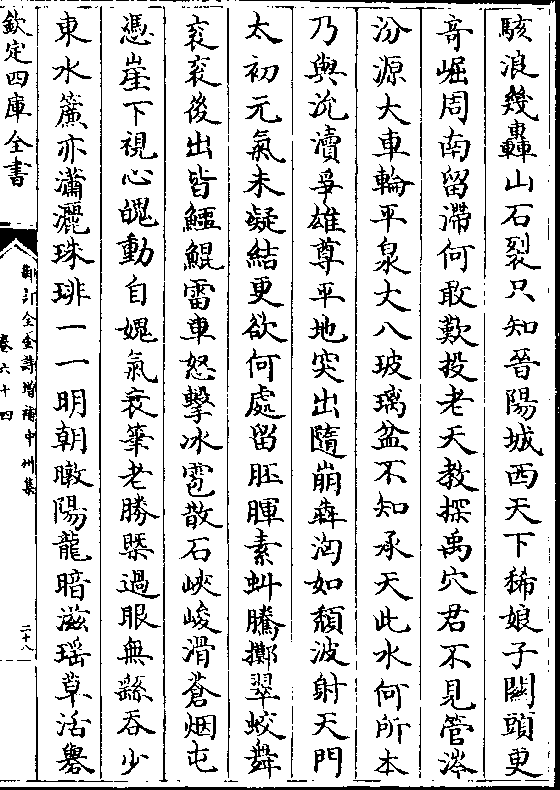 駭浪幾轟山石裂只知晉陽城西天下稀娘子關頭更
竒崛周南留滯何敢歎投老天教探禹穴君不見管涔
汾源大車輪平泉大八玻璃盆不知承天此水何所本
乃與沇瀆爭雄尊平地突出隨崩犇洶如頽波射天門
太初元氣未凝結更欲何處留胚暉素虯騰擲翠蛟舞
衮衮後出皆鱷鯤雷車怒擊冰雹散石峽峻滑蒼烟屯
憑崖下視心魄動自媿氣衰筆老勝槩過眼無繇吞少
東水簾亦瀟灑珠琲一一明朝暾陽龍暗滋瑶草活礜
欽定四庫全書
御訂全金詩增補中州集
卷六十四
二十八